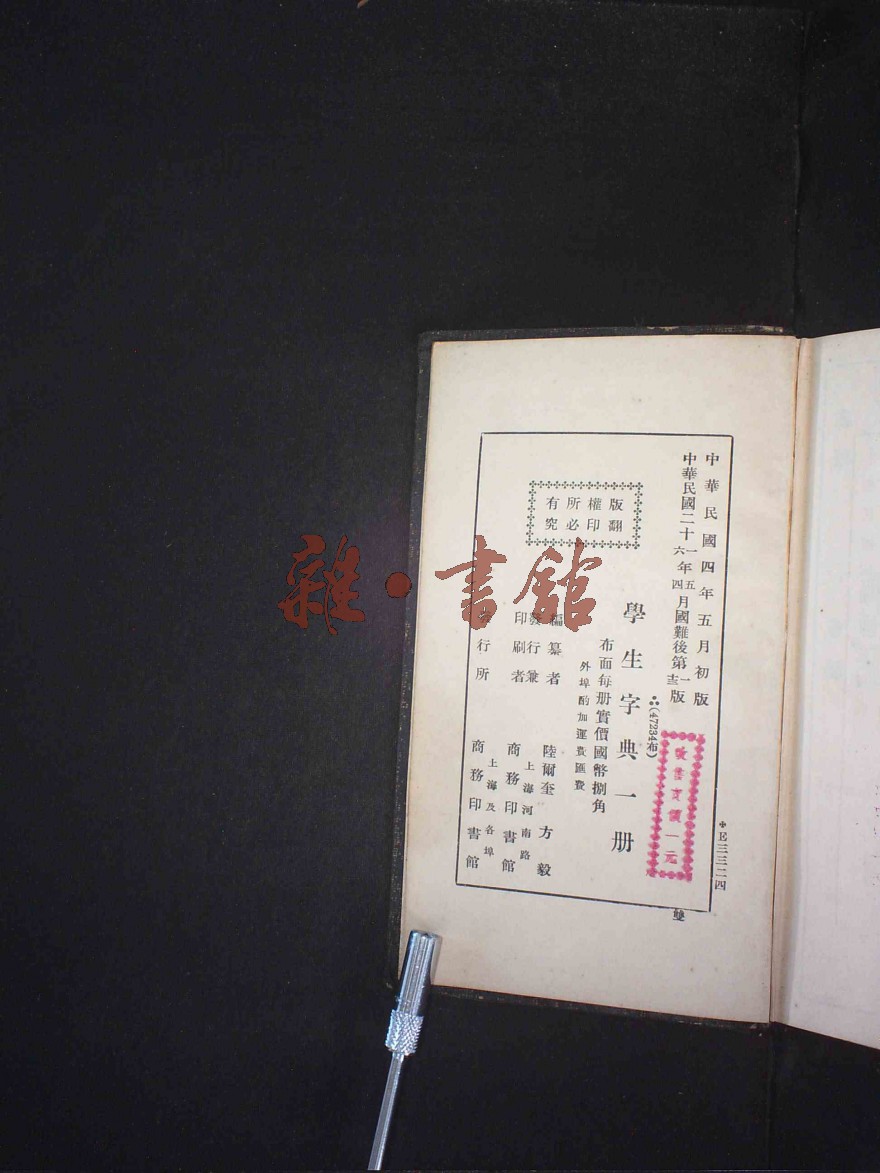 E三三二四
雙
中華民國四年五月初版
中華民國二十一六年五四月國難後第一版
(47234布)
學生字典一册
布面每册實價國幣捌角
外埠酌加運費匯費
版權所有
翻印必究
編纂者 陸爾奎 方毅
發行兼印刷者 上海河南路 商務印書館
發行所 上海及各埠 商務印書館
價一元
雜·書館